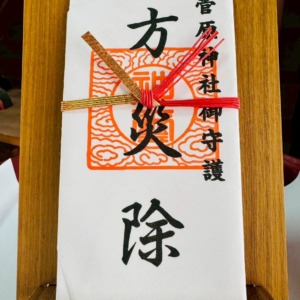 菅原神社御守護
方災除